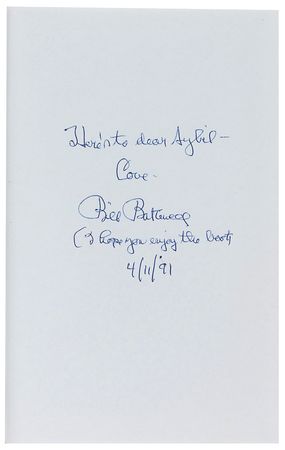 Here's to dear Sybil –
Love –
Bill
(I hope you enjoy the book
4/11/'91